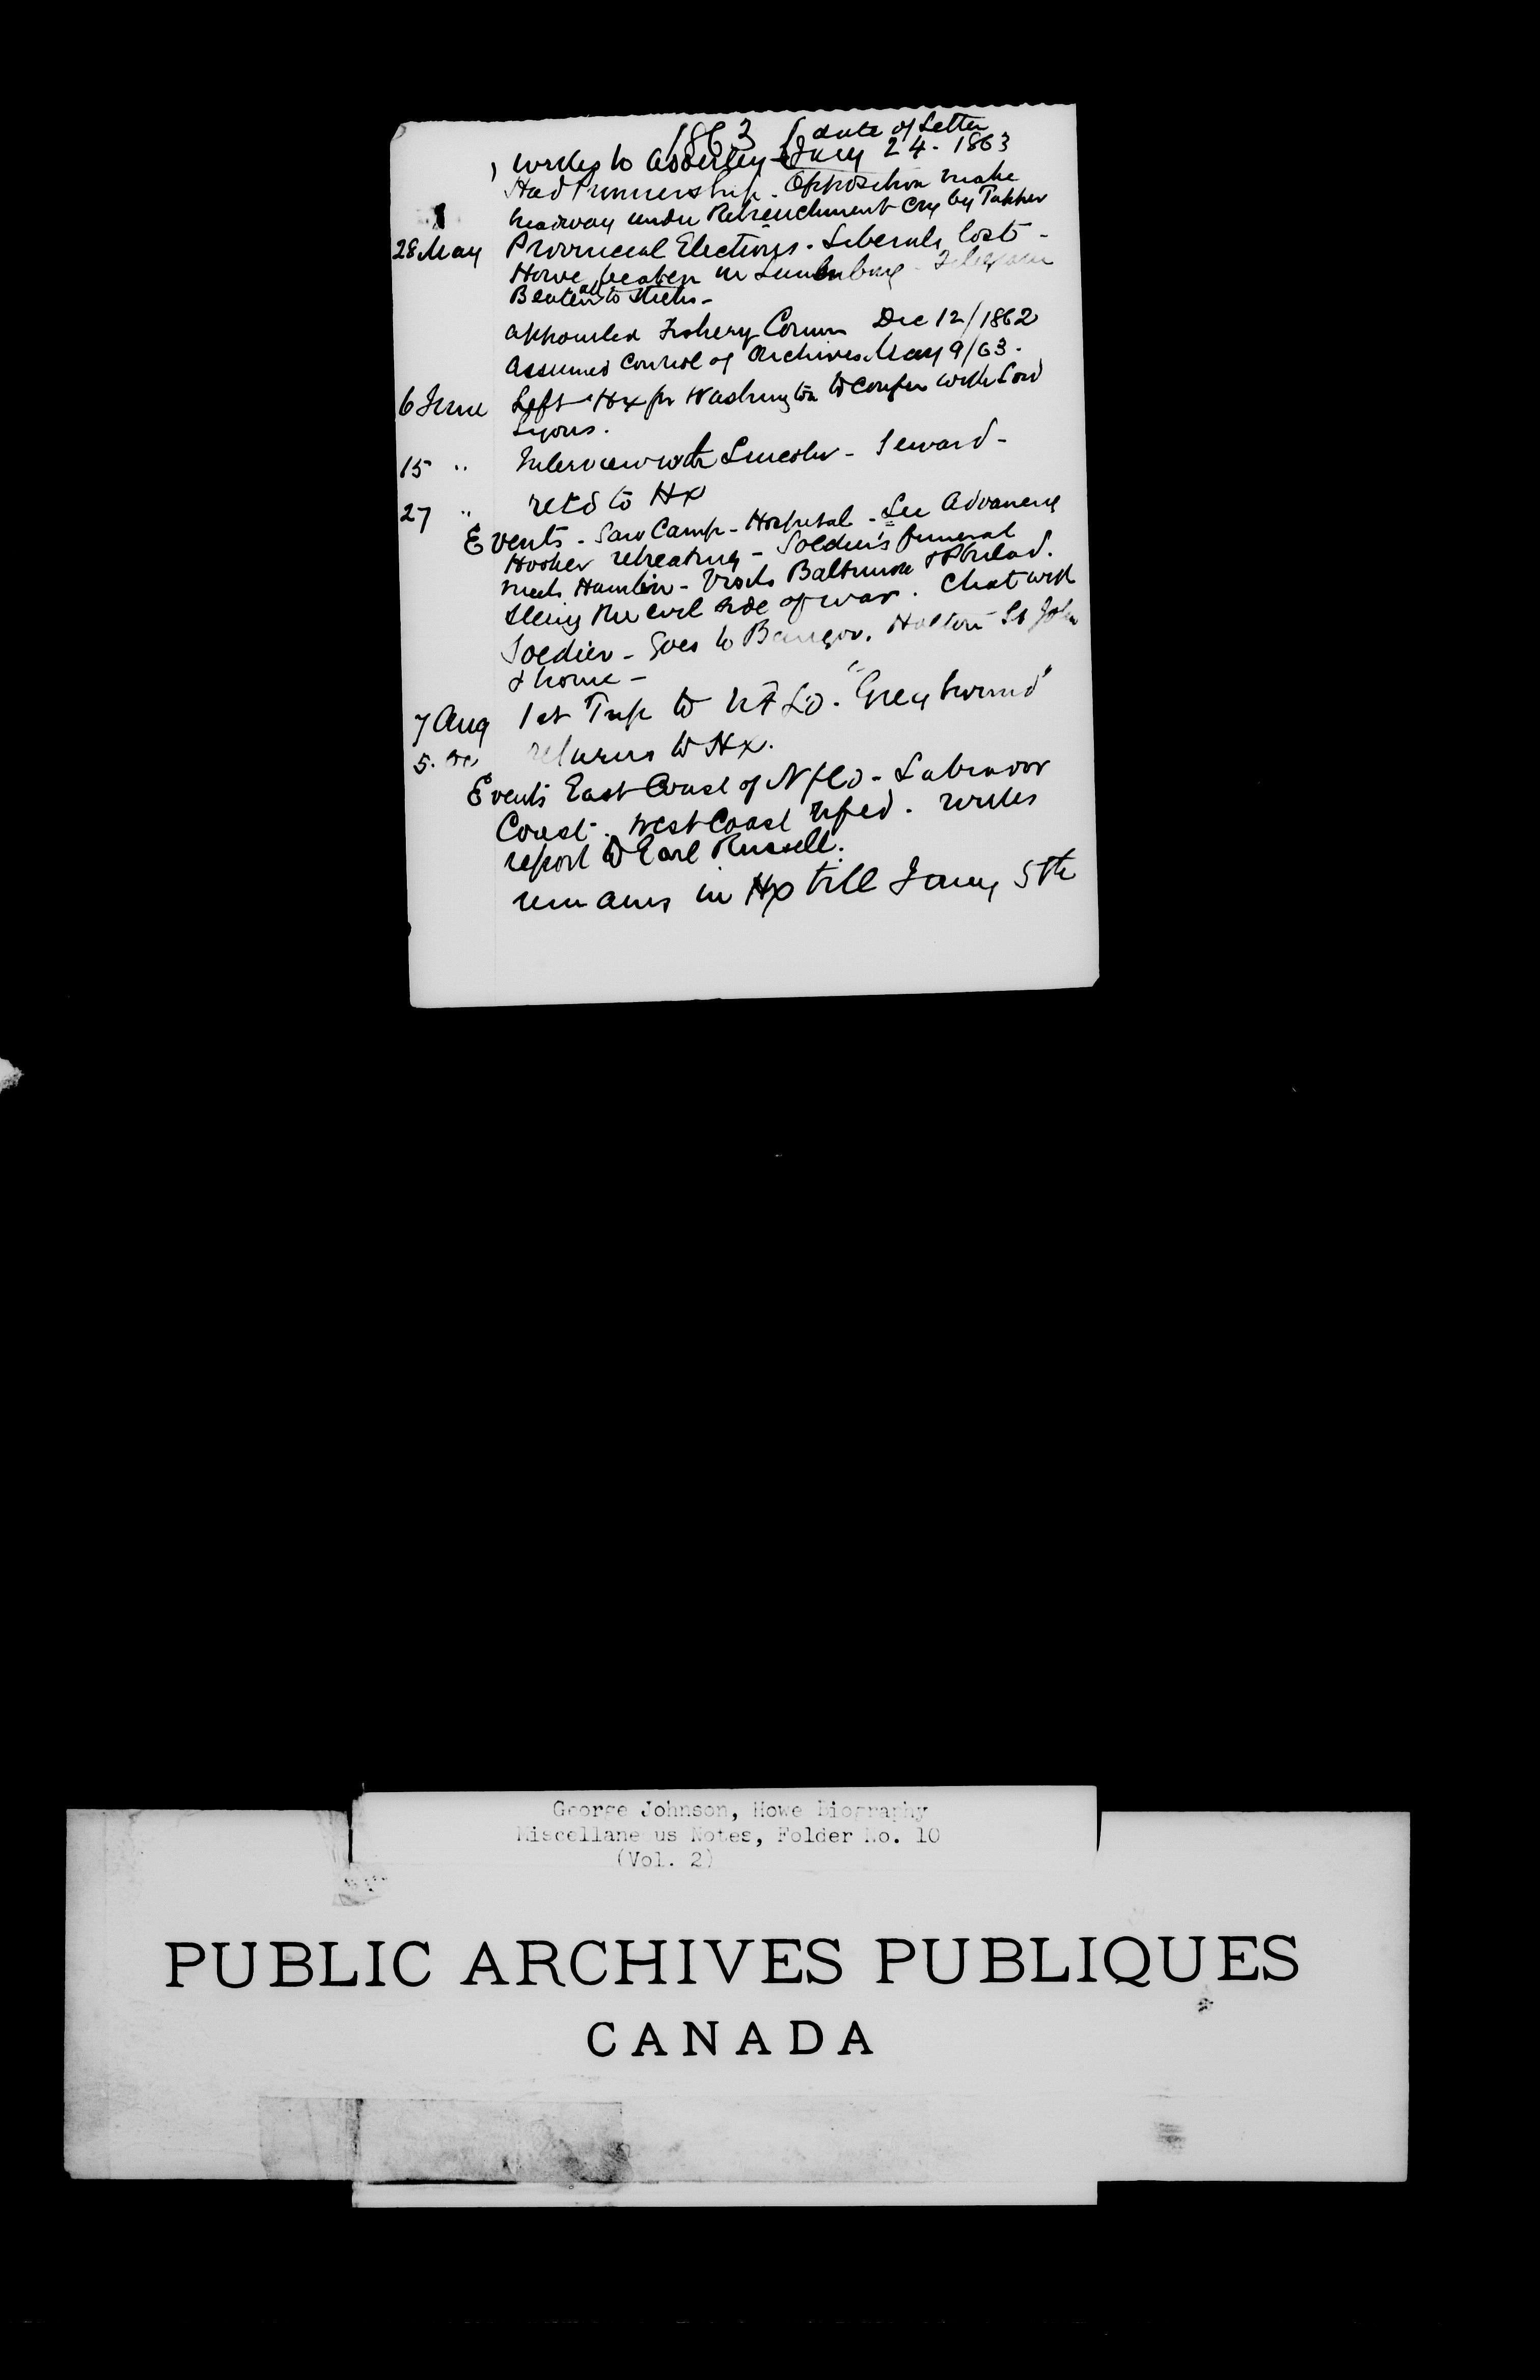 1863 { date of Letter
writes to Adderley Jany 24 - 1863
Had Premiership - Opposition make
headway under Retrenchment cry by Tupper
28 May Provincial Elections. Liberals lost -
Howe beaten in Lunenburg - Telegram
Beaten all to sticks -
appointed Fishery Comm Dec 12/1862
assumed control of Archives May 9/63.
6 June Left Hx for Washington to confer with Lord
Lyons.
15 " Interview with Lincoln - Seward -
27 " retd to Hx
Events - Saw Camp - Hospital - Lee Advancing
Hooker retreating - Soldier's funeral
meets Hamlin - Visits Baltimore & Philad.
Seeing the evil side of war. Chat with
Soldier - Goes to Bangor, Holton St John
& home -
7 Aug 1st Trip to NFLD. "Greyhound"
5. returns to Hx.
Events East Coast of Nfld - Labrador
Coast - West Coast Nfld. writes
report to Earl Russell.
remains in Hx till Jany 5th
George Johnson, Howe Biography
Miscellaneous Notes, Folder No. 10
(Vol. 2)
PUBLIC ARCHIVES PUBLIQUES
CANADA